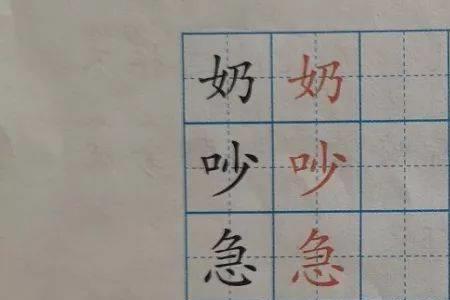 奶 奶
吵 吵
急 急